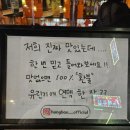 저희 진짜 맛있는데....
한 번 믿고 들어와보세요!!
맛없으면 100% "환불"
hongkon__official